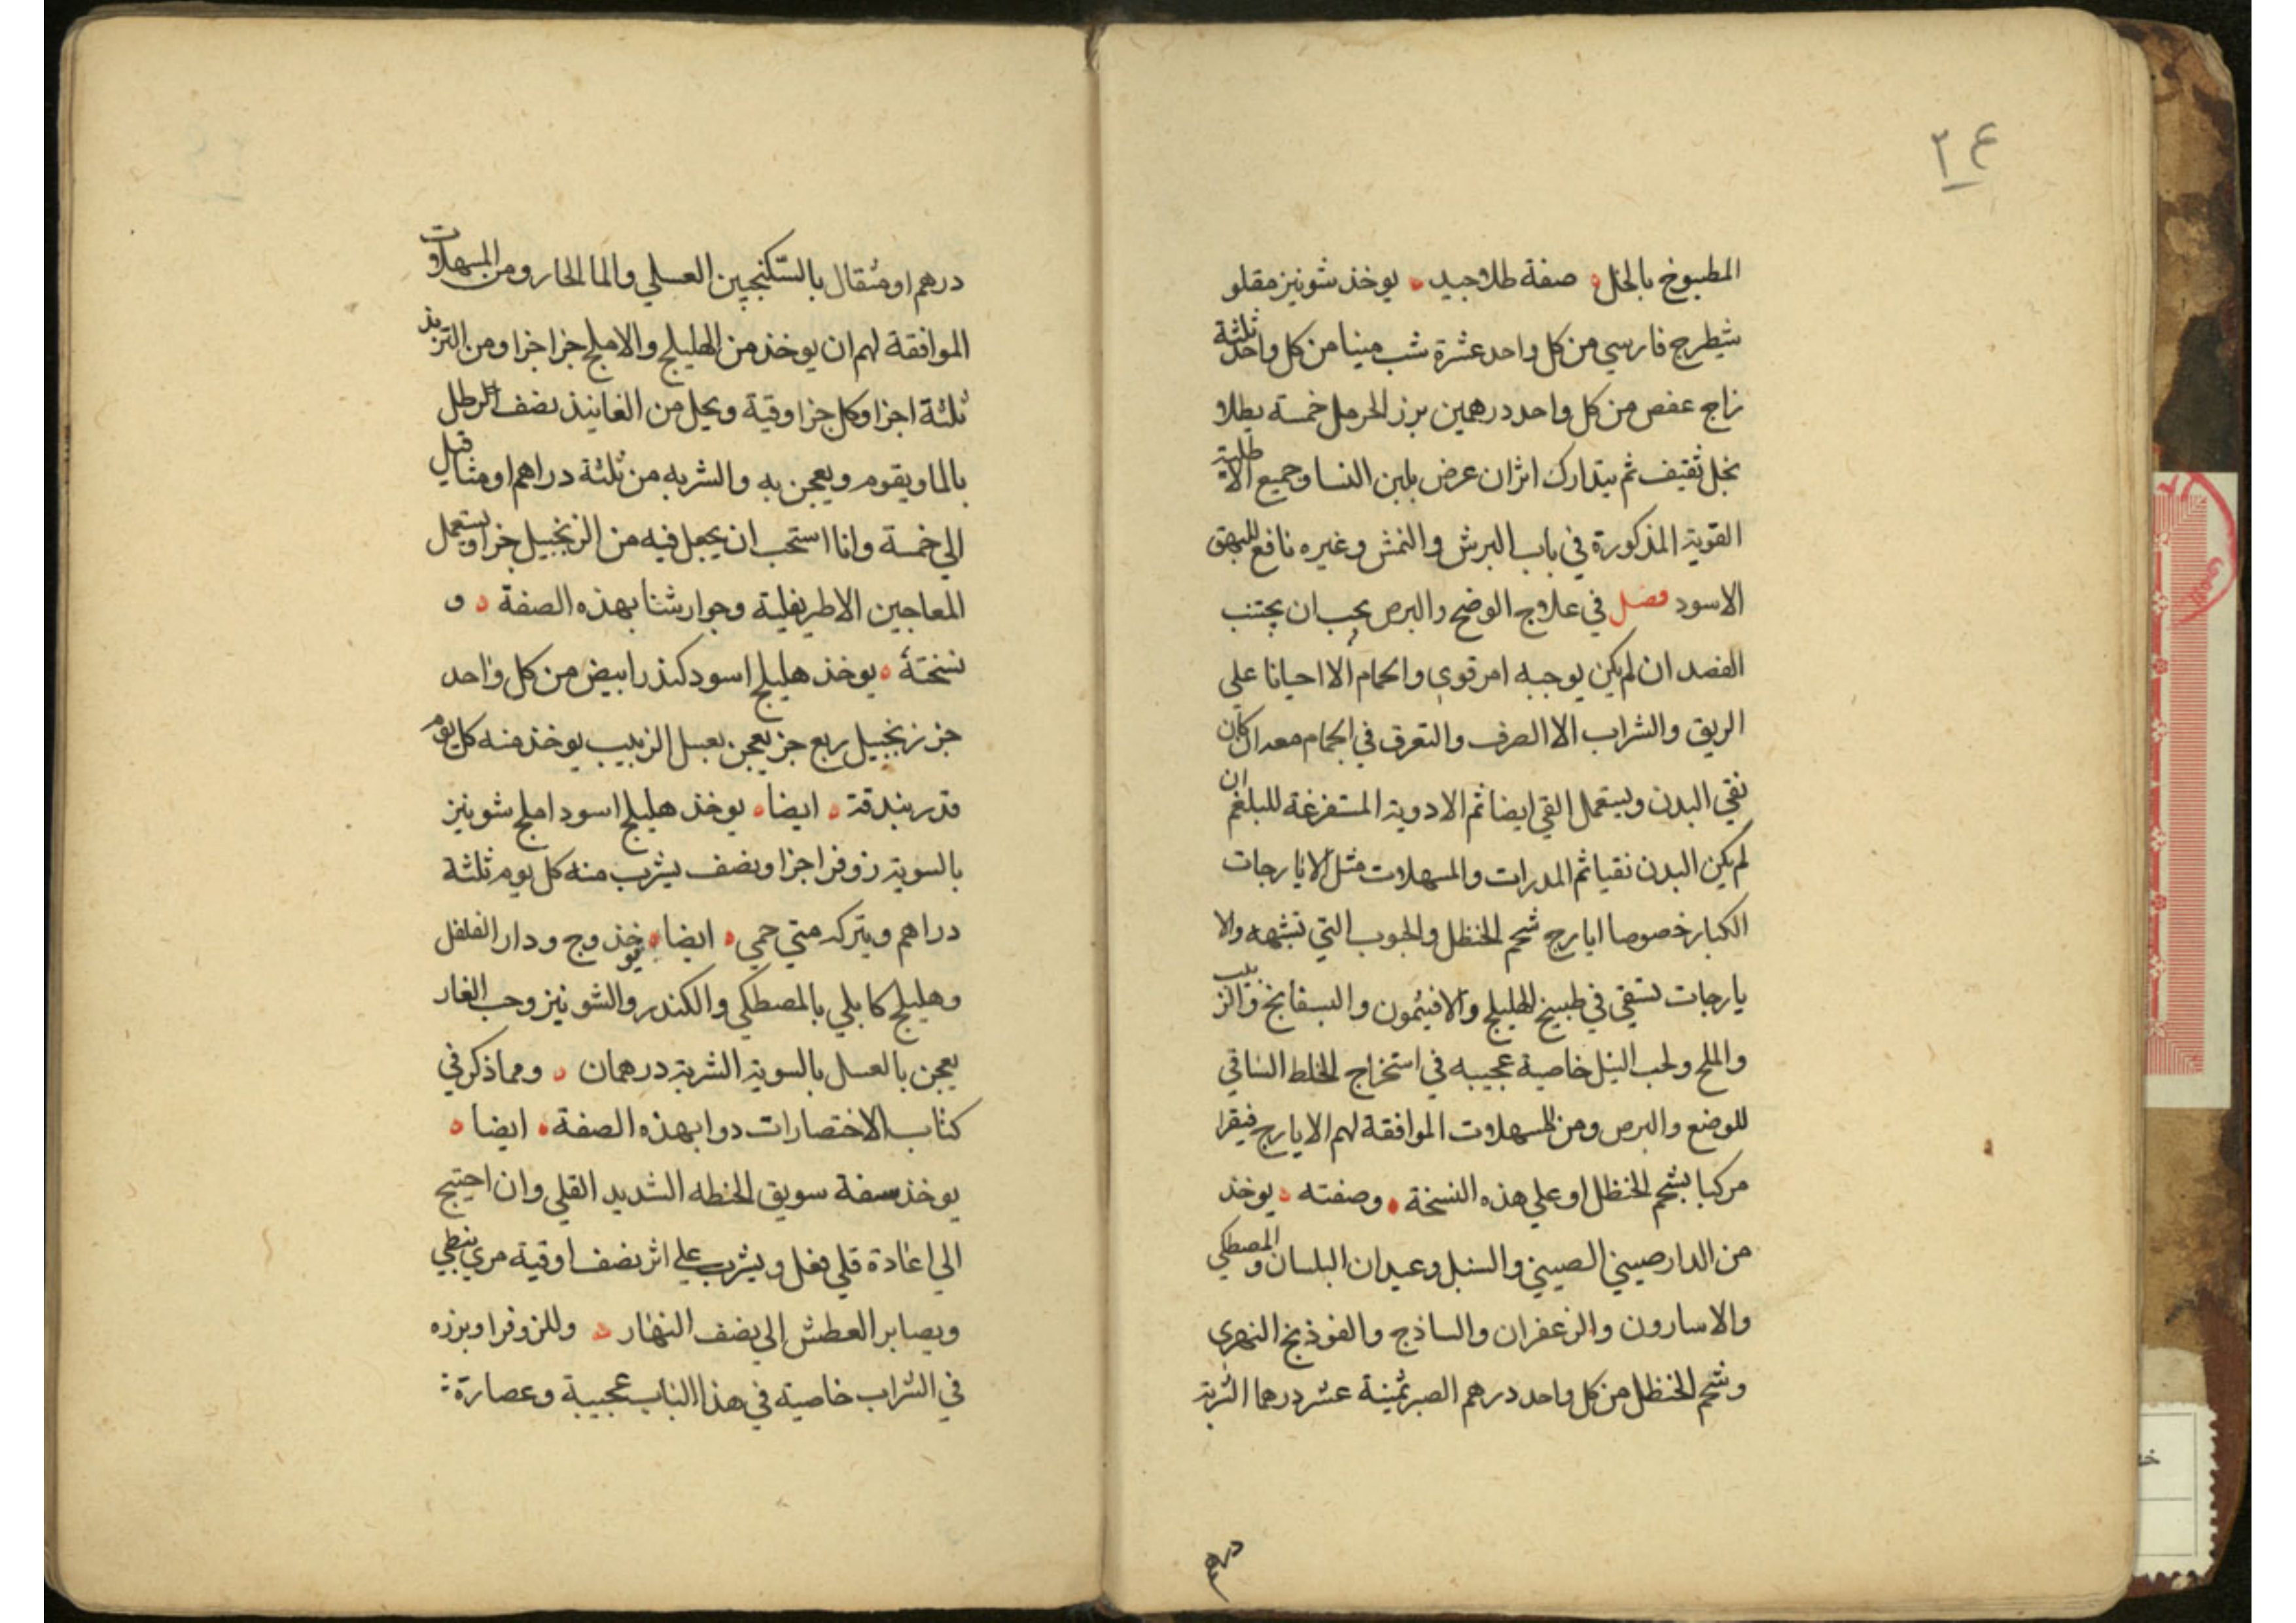 ٢٤
المطبوخ بالخل صفة طلا جيد يوخذ شونيز مقلو
شيطرج فارسي من كل واحد عشرة شب مينا من كل واحد ثلثة
زاج عفص من كل واحد درهمين بزر الحرمل خمسة يطلا
بخل ثقيف ثم يتدارك اثر ان عرض بلبن النسا وجميع الاطلية
القوية المذكورة في باب البرش والنمش وغيره نافع للبهق
الاسود فصل في علاج الوضح والبرص يجب ان يجتنب
الفصد ان لم يكن يوجبه امر قوي والحمام الا احيانا علي
الريق والشراب الا الصرف والتعرق في الحمام معد ان كان
نقي البدن ويستعمل القي ايضا ثم الادوية المستفرغة للبلغم ان
لم يكن البدن نقيا ثم المدرات والمسهلات مثل الايارجات
الكبار خصوصا ايارج شحم الحنظل والحبوب التي تشبهه والا
يارجات تسقي في طبيخ الهليلج والافيثمون والبسفايج والزبيب
والملح ولحب النيل خاصية عجيبه في استخراج الخلط الساقي
للوضع والبرص ومن المسهلات الموافقة لهم الايارج فيقرا
مركبا بشحم الحنظل او علي هذه النسخة وصفته يوخذ
من الدارصيني الصيني والسنبل وعيدان البلسان والمصطكي
والاسارون والزعفران والساذج والفوذنج النهري
وشحم الحنظل من كل واحد درهم الصبر ثمنية عشر درهما الشربة
درهم
درهم او مثقال بالسكنجبين العسلي والما الحار ومن المسهلات
الموافقة لهم ان يوخذ من الهليلج والاملج جزا جزا ومن التربذ
ثلثة اجزا وكل جزا وقية ويحل من الفانيذ نصف الرطل
بالما ويقوم ويعجن به والشربه من ثلثة دراهم او مثاقيل
الي خمسة وانا استحب ان يجعل فيه من الزنجبيل جزا ويستعمل
المعاجين الاطريفلية وجوارشنا بهذه الصفة و
نسخته يوخذ هليلج اسود كندر ابيض من كل واحد
جز زنجبيل ربع جز يعجن بعسل الزبيب يوخذ منه كل يوم
قدر بندقة ايضا يوخذ هليلج اسود املج شونيز
بالسوية زوفرا جزا ونصف يشرب منه كل يوم ثلثة
دراهم ويتركه متي حمي ايضا يوخذ وج ودار الفلفل
وهليلج كابلي بالمصطكي والكندر والشونيز وحب الغار
يعجن بالعسل بالسوية الشربة درهمان ومما ذكر في
كتاب الاختصارات دوا بهذه الصفة ايضا
يوخذ سفة سويق الحنطه الشديد القلي وان احتيج
الي اعادة قلي فعل ويشرب علي اثر نصف اوقية مري نبطي
ويصابر العطش الي نصف النهار وللزوفرا وبزره
في الشراب خاصية في هذا الباب عجيبة وعصارة